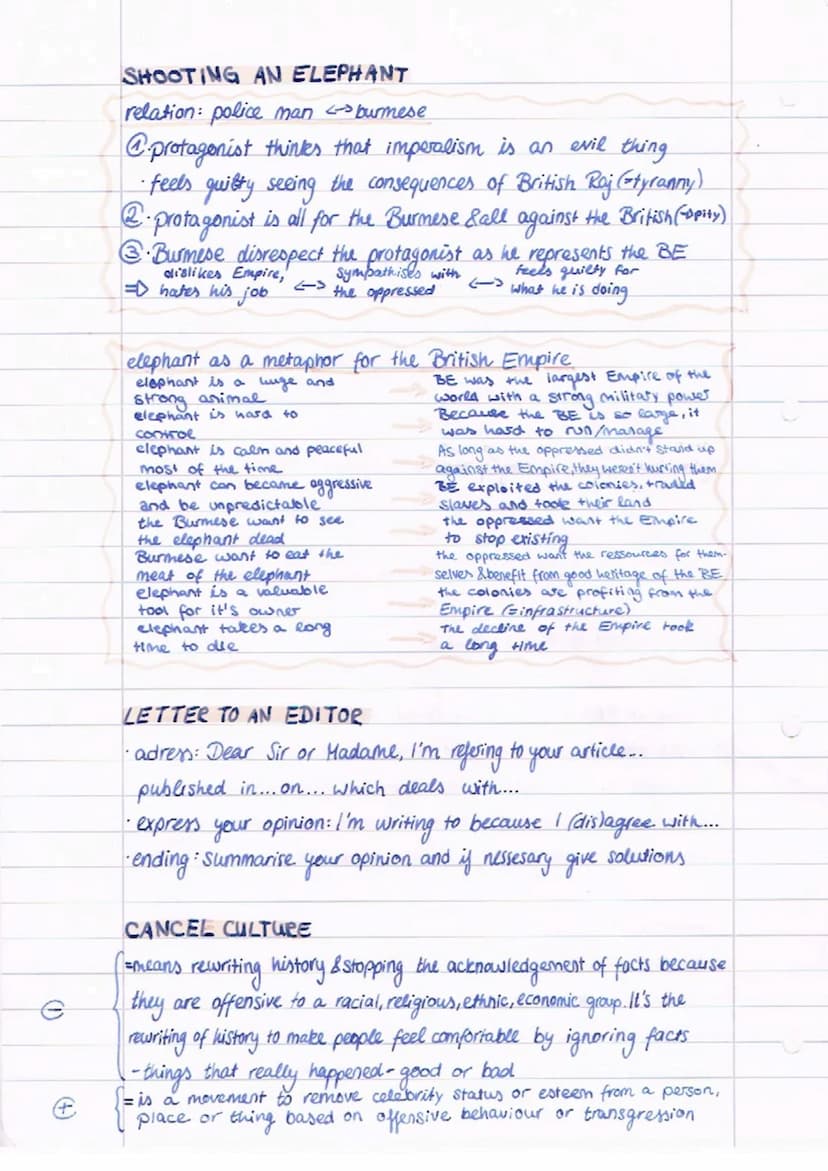 SHOOTING AN ELEPHANT
relation: police man <-> burmese
① · protagonist thinks that imperalism is an evil thing
· feels guilty seeing the consequences of British Raj (=tyranny)
② · protagonist is all for the Burmese & all against the British (→pity)
③ · Burmese disrespect the protagonist as he represents the BE
dislikes Empire, sympathises with feels guilty for
=> hates his job <-> the oppressed <-> what he is doing
elephant as a metaphor for the British Empire
elephant is a huge and → BE was the largest Empire of the
strong animal world with a strong military power
elephant is hard to → Because the BE is so large, it
control was hard to run/manage
elephant is calm and peaceful → As long as the oppressed didn't stand up
most of the time against the Empire, they weren't hurting them
elephant can became aggressive → BE exploited the colonies, traded
and be unpredictable slaves and took their land
the Burmese want to see → the oppressed want the Empire
the elephant dead to stop existing
Burmese want to eat the → the oppressed want the ressources for them-
meat of the elephant selves & benefit from good heritage of the BE
elephant is a valuable → the colonies are profiting from the
tool for it's owner Empire (=infrastructure)
elephant takes a long → The decline of the Empire took
time to die a long time
LETTER TO AN EDITOR
· adress: Dear Sir or Madame, I'm refering to your article...
published in... on... which deals with...
· express your opinion: I'm writing to because I (dis)agree with...
· ending: summarise your opinion and if nessesary give solutions
CANCEL CULTURE
=means rewriting history & stopping the acknowledgement of facts because
they are offensive to a racial, religious, ethnic, economic group. It's the
⊖ rewriting of history to make people feel comfortable by ignoring facts
- things that really happened - good or bad
= is a movement to remove celebrity status or esteem from a person,
⊕ place or thing based on offensive behaviour or transgression